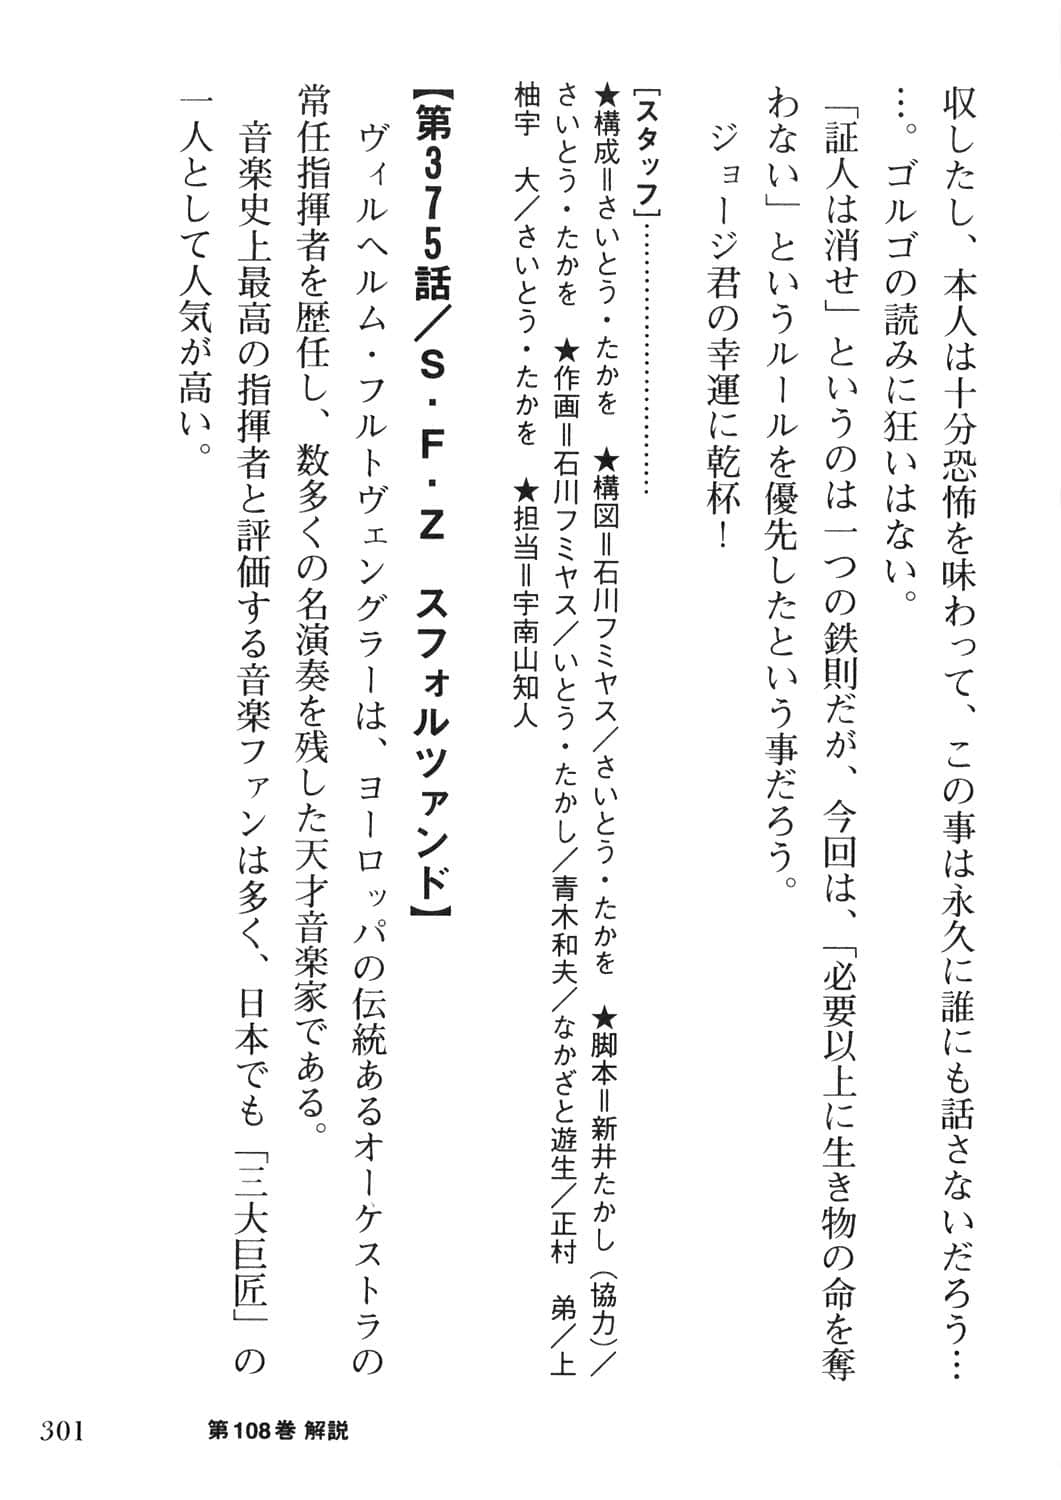 収したし、本人は十分恐怖を味わって、この事は永久に誰にも話さないだろう…
…。ゴルゴの読みに狂いはない。
「証人は消せ」というのは一つの鉄則だが、今回は、「必要以上に生き物の命を奪
わない」というルールを優先したという事だろう。
ジョージ君の幸運に乾杯！
[スタッフ]……………………………
★構成＝さいとう・たかを　★構図＝石川フミヤス／さいとう・たかを　★脚本＝新井たかし（協力）／
さいとう・たかを　★作画＝石川フミヤス／いとう・たかし／青木和夫／なかざと遊生／正村　弟／上
柚宇　大／さいとう・たかを　★担当＝宇南山知人
【第375話／S・F・Z　スフォルツァンド】
ヴィルヘルム・フルトヴェングラーは、ヨーロッパの伝統あるオーケストラの
常任指揮者を歴任し、数多くの名演奏を残した天才音楽家である。
音楽史上最高の指揮者と評価する音楽ファンは多く、日本でも「三大巨匠」の
一人として人気が高い。
301
第108巻 解説